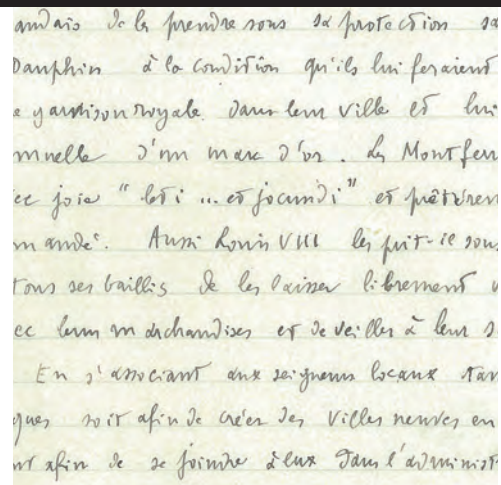 andais de les prendre sous sa protection sa
Dauphin à la condition qu'ils lui feraient
e garnison royale dans leur ville et lui
nnuelle d'un marc d'or. Les Montferr
ec joie "leti ... et jocundi" et prêtèrent
mandé. Aussi Louis VIII les prit-il sous
tous ses baillis de les laisser librement v
ec leurs marchandises et de veiller à leur s
En s'associant aux seigneurs locaux tan
ques soit afin de créer des villes neuves en
nt afin de se joindre à eux dans l'administ